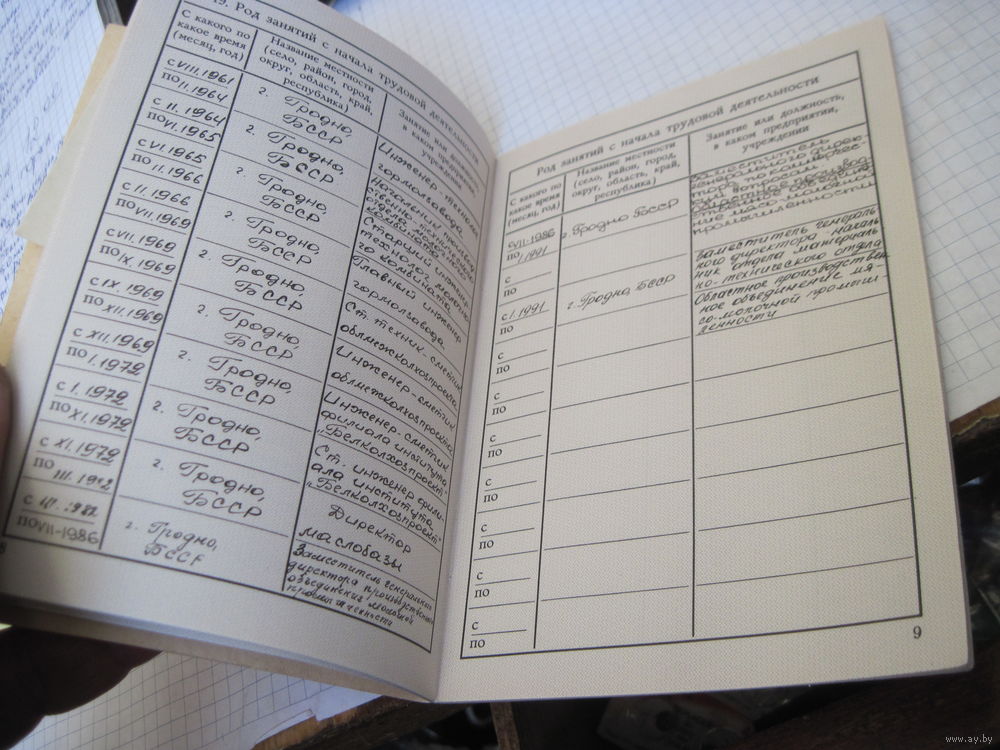 19. Род занятий с начала трудовой деятельности
С какого по
какое время
(месяц, год)
Название местности
(село, район, город,
округ, область, край,
республика)
Занятие или должность,
в каком предприятии,
учреждении
с VIII.1961
по II.1964
г. Гродно,
БССР
Инженер-технолог
гормолзавода
с II.1964
по VI.1965
г. Гродно,
БССР
Начальник производ
ственно-технического
отдела молочного
комбината
с VI.1965
по II.1966
г. Гродно,
БССР
Старший инженер
технолог молочно
го комбината
с II.1966
по VII.1969
г. Гродно,
БССР
Главный инженер
гормолзавода.
с VII.1969
по IX.1969
г. Гродно,
БССР
Ст. техник-сметчик
облмежколхозпроекта
с IX.1969
по XII.1969
г. Гродно,
БССР
Инженер-сметчик
облмежколхозпроекта
с XII.1969
по I.1972
г. Гродно,
БССР
Инженер-сметчик
филиала института
"Белколхозпроект"
с I.1972
по XI.1972
г. Гродно,
БССР
Ст. инженер фили-
ала института
"Белколхозпроект"
с XI.1972
по III.
г. Гродно,
БССР
Директор
маслобазы
с
по VII-1986
г. Гродно,
БССР
Заместитель генерального
директора производственного
объединения молочной
промышленности
8
Род занятий с начала трудовой деятельности
С какого по
какое время
(месяц, год)
Название местности
(село, район, город,
округ, область, край,
республика)
Занятие или должность,
в каком предприятии,
учреждении
с VII-1986
по I.1991
г. Гродно БССР
Заместитель
генерального дирек-
тора по коммерчес-
ким вопросам
ние мясо-молочной
промышленности
с I.1991
по
г. Гродно, БССР
Заместитель генераль
ного директора-началь
ник отдела материаль
но-технического отдела
Областное производствен
ное объединение мя-
со-молочной промыш
ленности
с
по
с
по
с
по
с
по
с
по
с
по
с
по
с
по
9
www.ay.by